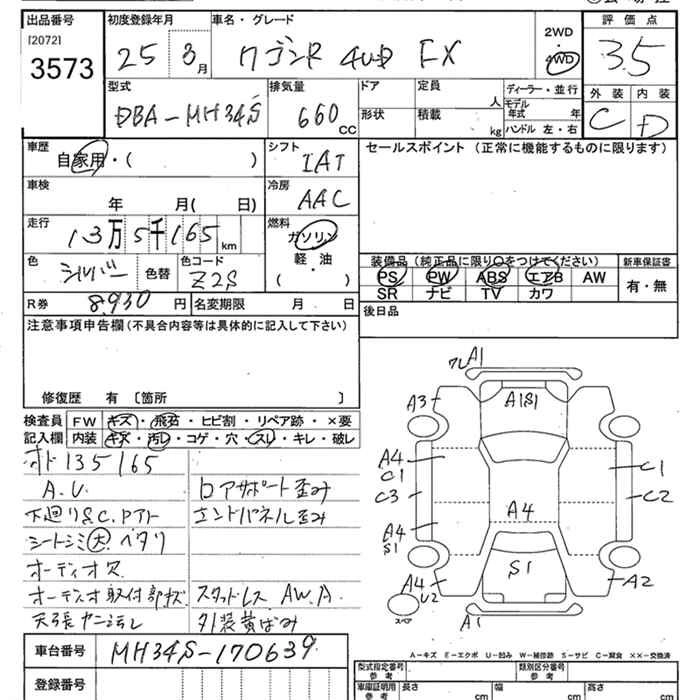 出品番号 初度登録年月 車名・グレード 2WD 評価点
[2072] 25 8月 ワゴンR 4WD FX 4WD 3.5
3573
型式 排気量 ドア 定員 ディーラー・並行 外装 内装
DBA-MH34S 660cc 人 モデル年式 年 C D
形状 積載 kg ハンドル 左・右
車歴 シフト セールスポイント (正常に機能するものに限ります)
自家用・( ) IAT
車検 冷房
年 月( 日) AAC
走行 燃料
13万5千165km ガソリン
軽・油
( ・ )
色 シルバー 色替 色コード Z2S
装備品 (純正品に限り○をつけてください) 新車保証書
PS PW ABS エアB AW 有・無
SR ナビ TV カワ
R券 8,930円 名変期限 月 日
後日品
注意事項申告欄(不具合内容等は具体的に記入して下さい)
修復歴 有 〔箇所 〕
検査員 FW キズ・飛石・ヒビ割・リペア跡・×要
記入欄 内装 キズ・汚レ・コゲ・穴・スレ・キレ・破レ
オド135165
A.U.
下廻りS.C.Pアト
シートシミ大ベタリ
オーディオ欠
オーディオ取付部キズ
天張ヤニヨゴレ
ロアサポート歪み
エンドパネル歪み
スタッドレス AW.A.
外装黄ばみ
A1
A3 A1S1
A4 C1
C1
C3 C2
A4
A4
S1
S1
A4 A2
U2
スペア
A1
A-キズ E-エクボ U-凹み W-補修跡 S-サビ C-腐食 XX-交換済
車台番号 MH34S-170639
登録番号
型式指定番号 参考 類別区分番号 参考
車庫証明用 参考 長さ cm 幅 cm 高さ cm